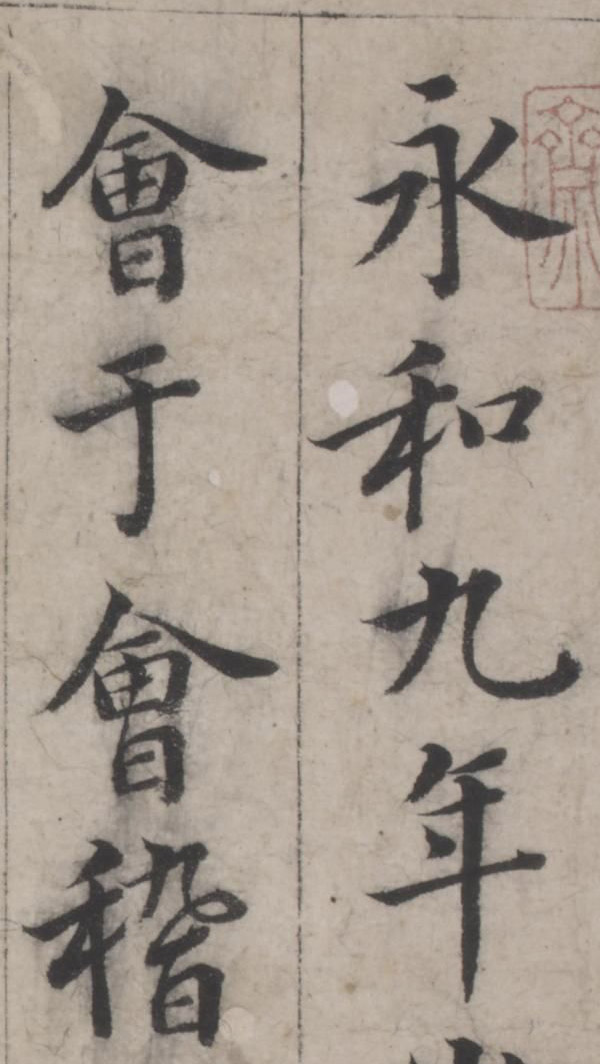 永和九年
會于會稽